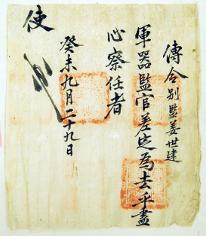 傳令別監姜世建
軍器監官差定爲去乎盡
心察任者
癸未九月二十九日
使